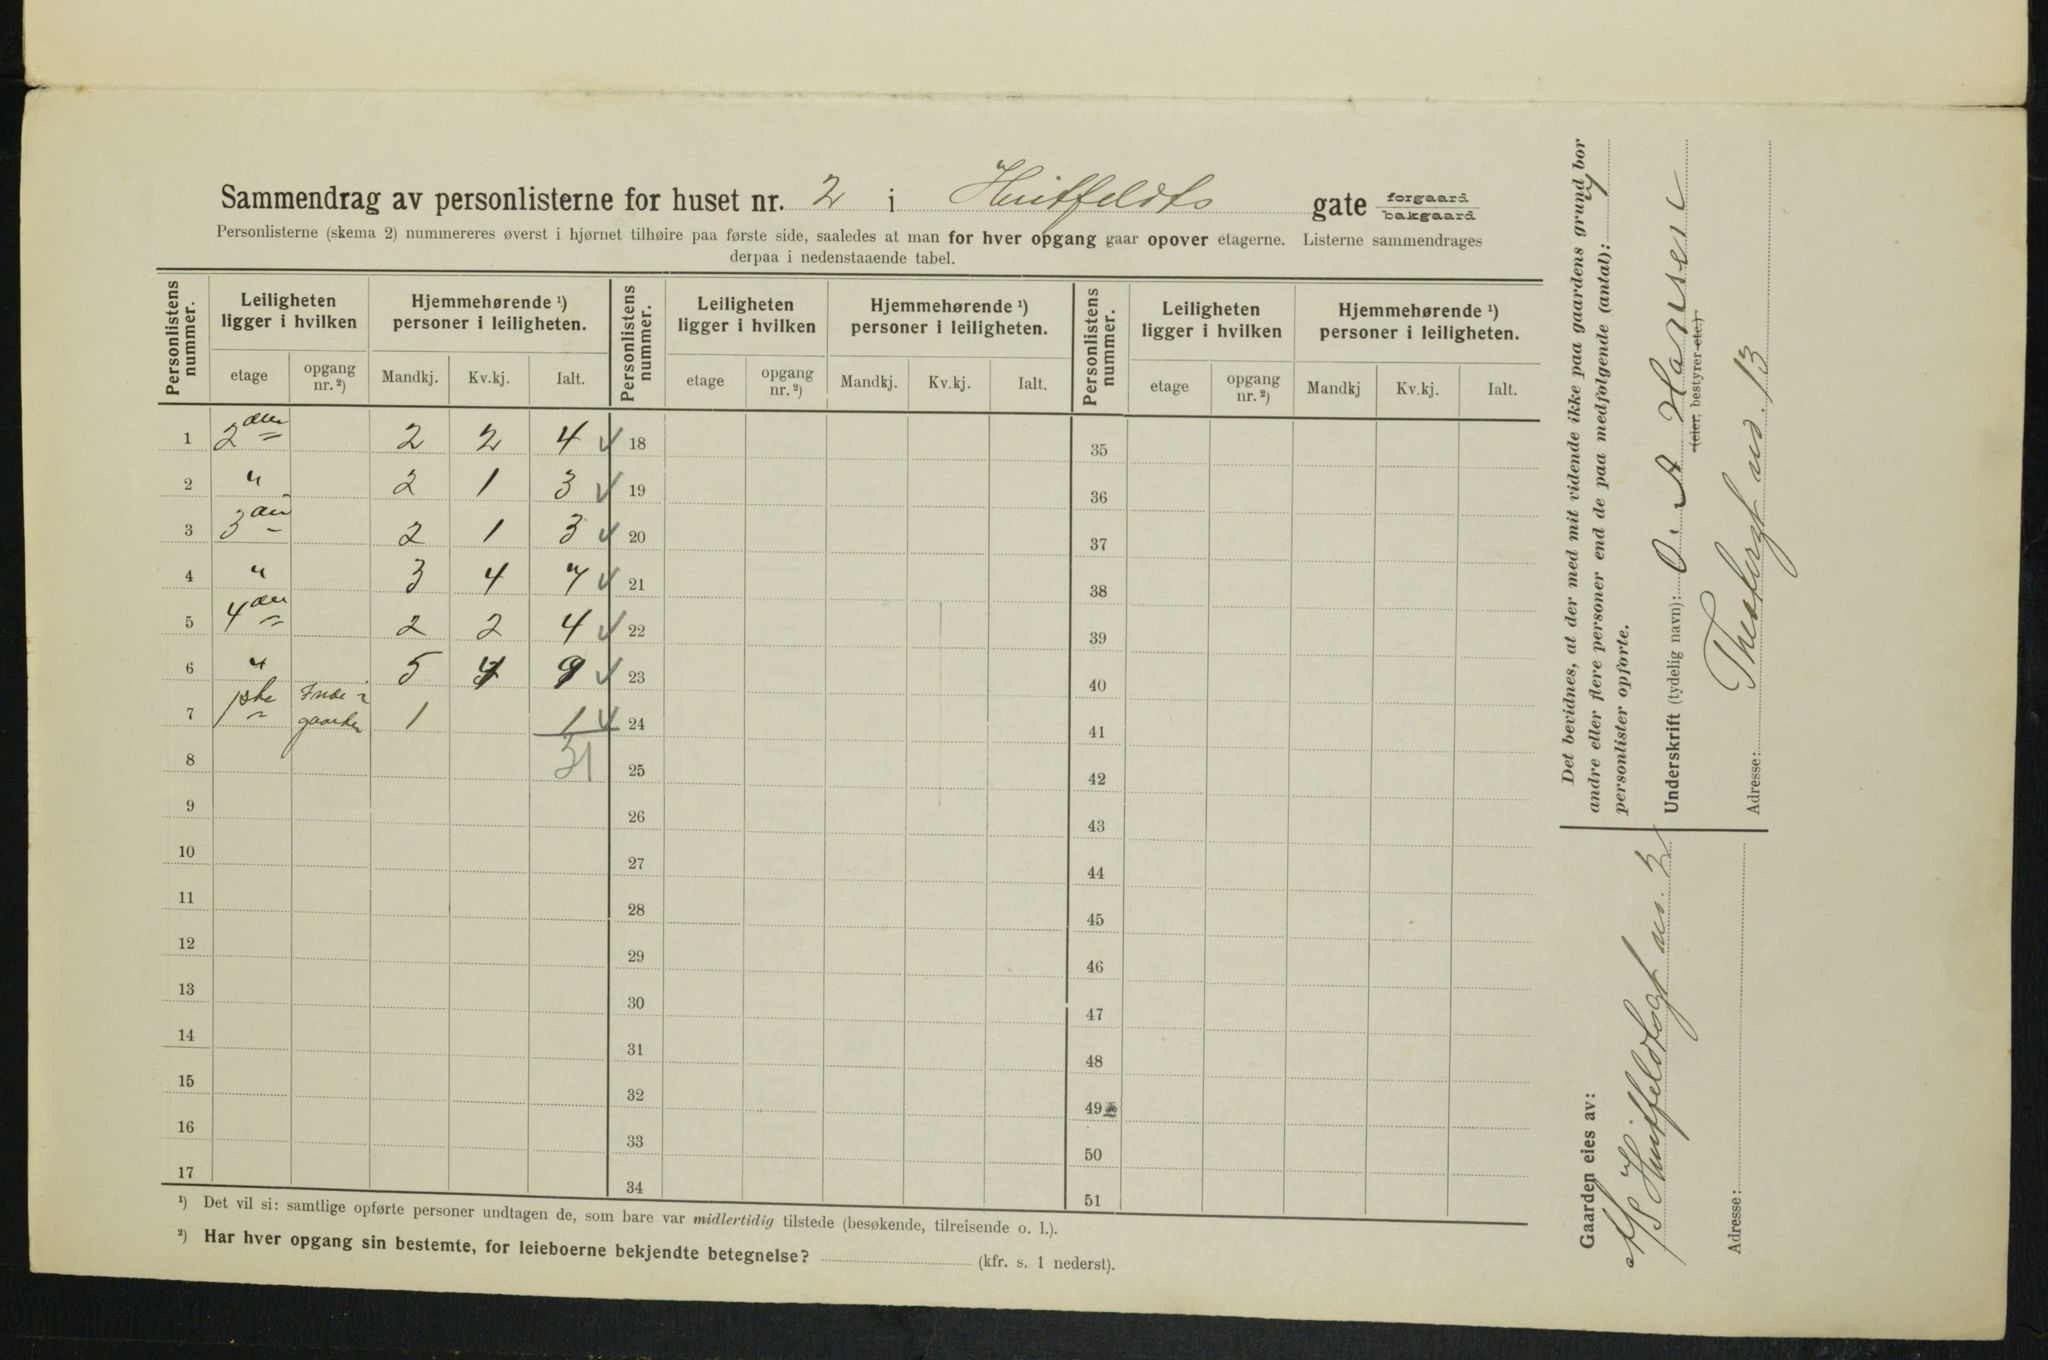 Sammendrag av personlisterne for huset nr. 2 i Huitfeldts gate forgaard bakgaard
Personlisterne (skema 2) nummereres øverst i hjørnet tilhøire paa første side, saaledes at man for hver opgang gaar opover etagerne. Listerne sammendrages
derpaa i nedenstaaende tabel.
Personlistens nummer. Leiligheten ligger i hvilken Hjemmehørende ¹) personer i leiligheten. Personlistens nummer. Leiligheten ligger i hvilken Hjemmehørende ¹) personer i leiligheten. Personlistens nummer. Leiligheten ligger i hvilken Hjemmehørende ¹) personer i leiligheten.
etage opgang nr. ²) Mandkj. Kv.kj. Ialt. etage opgang nr. ²) Mandkj. Kv.kj. Ialt. etage opgang nr. ²) Mandkj Kv.kj. Ialt.
1 2den 2 2 4 18 35
2 " 2 1 3 19 36
3 3die 2 1 3 20 37
4 " 3 4 7 21 38
5 4de 2 2 4 22 39
6 " 5 4 9 23 40
7 1ste Inde i gaarden 1 1 24 41
8 31 25 42
9 26 43
10 27 44
11 28 45
12 29 46
13 30 47
14 31 48
15 32 49
16 33 50
17 34 51
¹) Det vil si: samtlige opførte personer undtagen de, som bare var midlertidig tilstede (besøkende, tilreisende o. l.).
²) Har hver opgang sin bestemte, for leieboerne bekjendte betegnelse? (kfr. s. 1 nederst).
Det bevidnes, at der med mit vidende ikke paa gaardens grund bor
andre eller flere personer end de paa medfølgende (antal): 7
personlister opførte.
Underskrift (tydelig navn): O. A Hansen
(eier, bestyrer etc.)
Adresse: Theresesgt no. 13
Gaarden eies av:
A/S Huitfeldtsgt no. 2
Adresse: